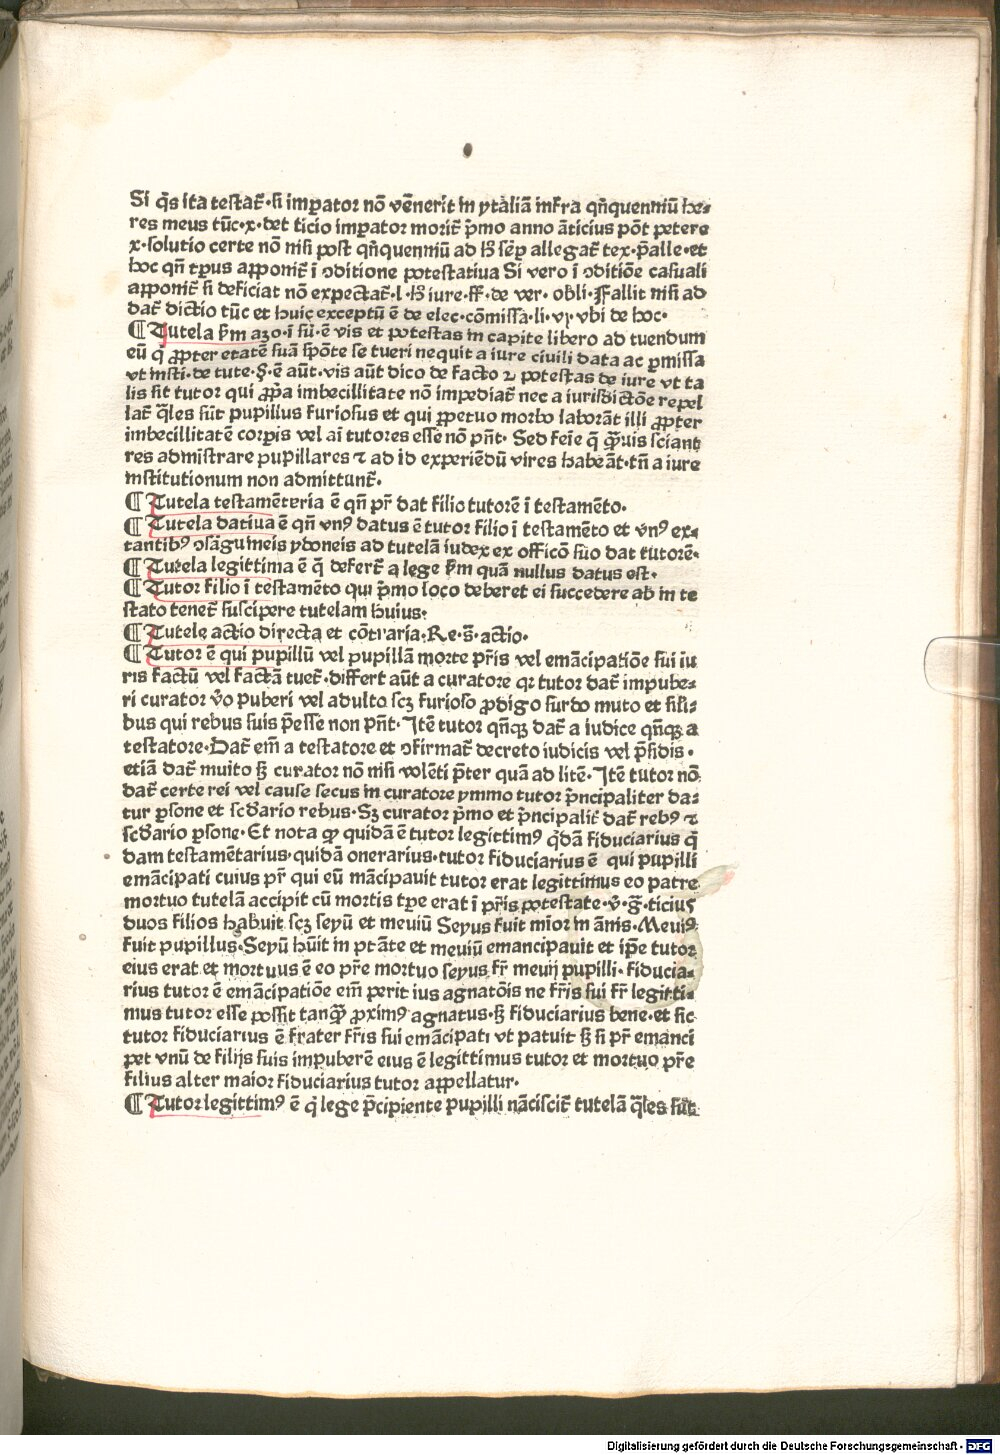 Si q̄s ita testat̄·si imꝑator nō vēnerit in ytāliā infra qn̄quenniū he⸗
res meus tūc·x·det ticio imꝑator morit̄ p̄mo anno āticius pōt petere
x·solutio certe nō nisi post qn̄quenniū ad h̄ sēꝑ allegat̄ tex·p̄alle·et
hoc qn̄ tp̄us apponit̄ ī ꝯditione potestatiua Si vero ī ꝯditiōe casuali
apponit̄ si deficiat nō expectat̄·l·h̄ iure·ff·de ver·obli·Fallit nisi ad
dat̄ dictio tūc et huic exceptū ē de elec·cōmissa·li·vj·vbi de hoc·
¶ Tutela ẜm azo·ī sū·ē vis et potestas in capite libero ad tuendum
eū q̄ ꝓpter etatē suā spōte se tueri nequit a iure ciuili data ac ꝑmissa
vt insti·de tute·§·ē aūt·vis aūt dico de facto ⁊ potestas de iure vt ta
lis sit tutor qui ꝓp̄a imbecillitate nō impediat̄ nec a iurisdictōe repel
lat̄ q̄les sūt pupillus furiosus et qui ꝑpetuo morbo laborāt illi ꝓpter
imbecillitatē corꝑis vel aī tutores esse nō pn̄t·Sed feīe q̄ q̄uis sciant
res admīstrare pupillares ⁊ ad id experiēdū vires habeāt·tn̄ a iure
institutionum non admittunt̄·
¶ Tutela testamēteria ē qn̄ pr̄ dat filio tutorē ī testamēto·
¶ Tutela datiua ē qn̄ vnꝰ datus ē tutor filio ī testamēto et vnꝰ ex⸗
tantibꝰ ꝯsāguineis ydoneis ad tutelā iudex ex officō suo dat tutorē·
¶ Tutela legittima ē q̄ defert̄ a lege ẜm quā nullus datus est·
¶ Tutor filio ī testamēto qui p̄mo loco deberet ei succedere ab in te
stato tenet̄ suscipere tutelam huius·
¶ Tutele actio directa et cōtraria·Re·s̄·actio·
¶ Tutor ē qui pupillū vel pupillā morte pr̄is vel emācipatiōe sui iu
ris factū vel factā tuet̄·differt aūt a curatore qꝛ tutor dat̄ impube⸗
ri curator v̄o puberi vel adulto scꝫ furioso ꝓdigo surdo muto et sili⸗
bus qui rebus suis p̄esse non pn̄t·Itē tutor qn̄qꝫ dat̄ a iudice qn̄qꝫ a
testatore·Dat̄ em̄ a testatore et ꝯfirmat̄ decreto iudicis vel p̄sidis·
etiā dat̄ inuito sꝫ curator nō nisi volēti p̄ter quā ad litē·Itē tutor nō
dat̄ certe rei vel cause secus in curatore ymmo tutor p̄ncipaliter da⸗
tur ꝑsone et scd̄ario rebus·Sꝫ curator p̄mo et p̄ncipalit̄ dat̄ rebꝰ ⁊
scd̄ario ꝑsone·Et nota ꝙ quidā ē tutor legittimꝰ q̄dā fiduciarius q̄
dam testamētarius·quidā onerarius·tutor fiduciarius ē qui pupilli
emācipati cuius pr̄ qui eū mācipauit tutor erat legittimus eo patre
mortuo tutelā accipit cū mortis tp̄e erat ī pr̄is potestate·v̄·ḡ·ticius
duos filios habuit scꝫ seyū et meuiū Seyus fuit mīor in ānis·Meuiꝰ
fuit pupillus·Seyū hūit in pt āte et meuiū emancipauit et ip̄e tutor
eius erat et mortuus ē eo pr̄e mortuo seyus fr̄ meuij pupilli·fiducia⸗
rius tutor ē emācipatiōe em̄ perit ius agnatōis ne fr̄is sui fr̄ legitti⸗
mus tutor esse possit tanq̄ ꝓximꝰ agnatus·sꝫ fiduciarius bene·et sic
tutor fiduciarius ē frater fr̄is sui emācipati vt patuit sꝫ si pr̄ emanci
pet vnū de filijs suis impuberē eius ē legittimus tutor et mortuo pr̄e
filius alter maior fiduciarius tutor appellatur·
¶ Tutor legittimꝰ ē q̄ lege p̄cipiente pupilli nāciscit̄ tutelā q̄les sūt
Digitalisierung gefördert durch die Deutsche Forschungsgemeinschaft - DFG